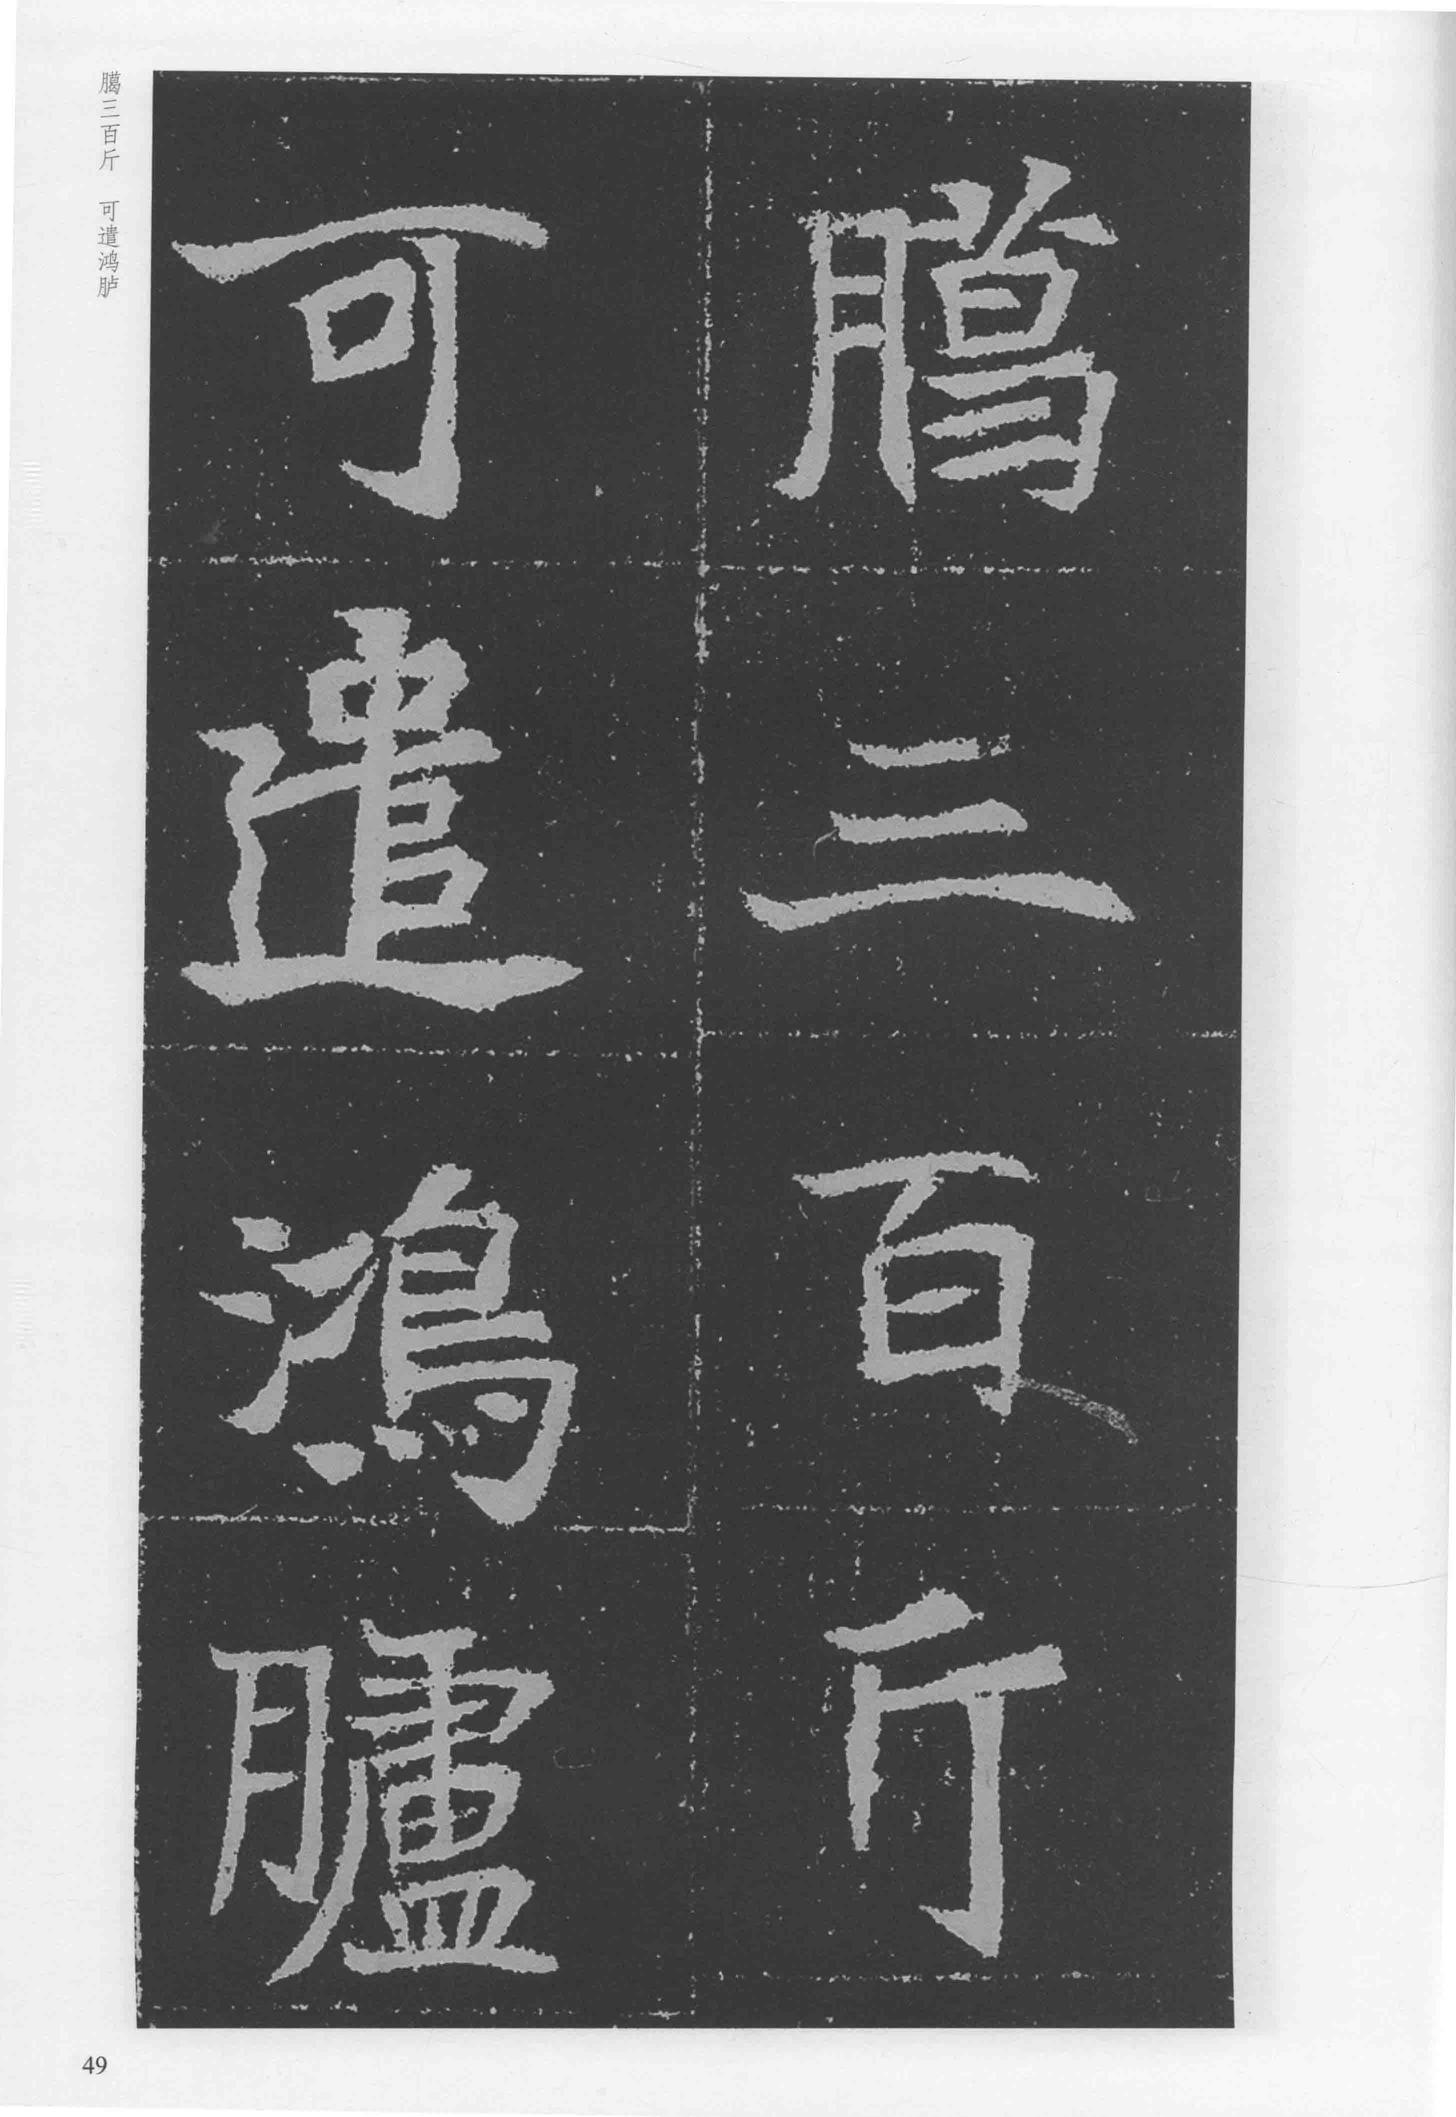 臈三百斤
可遣鴻臚
臈三百斤 可遣鸿胪
49